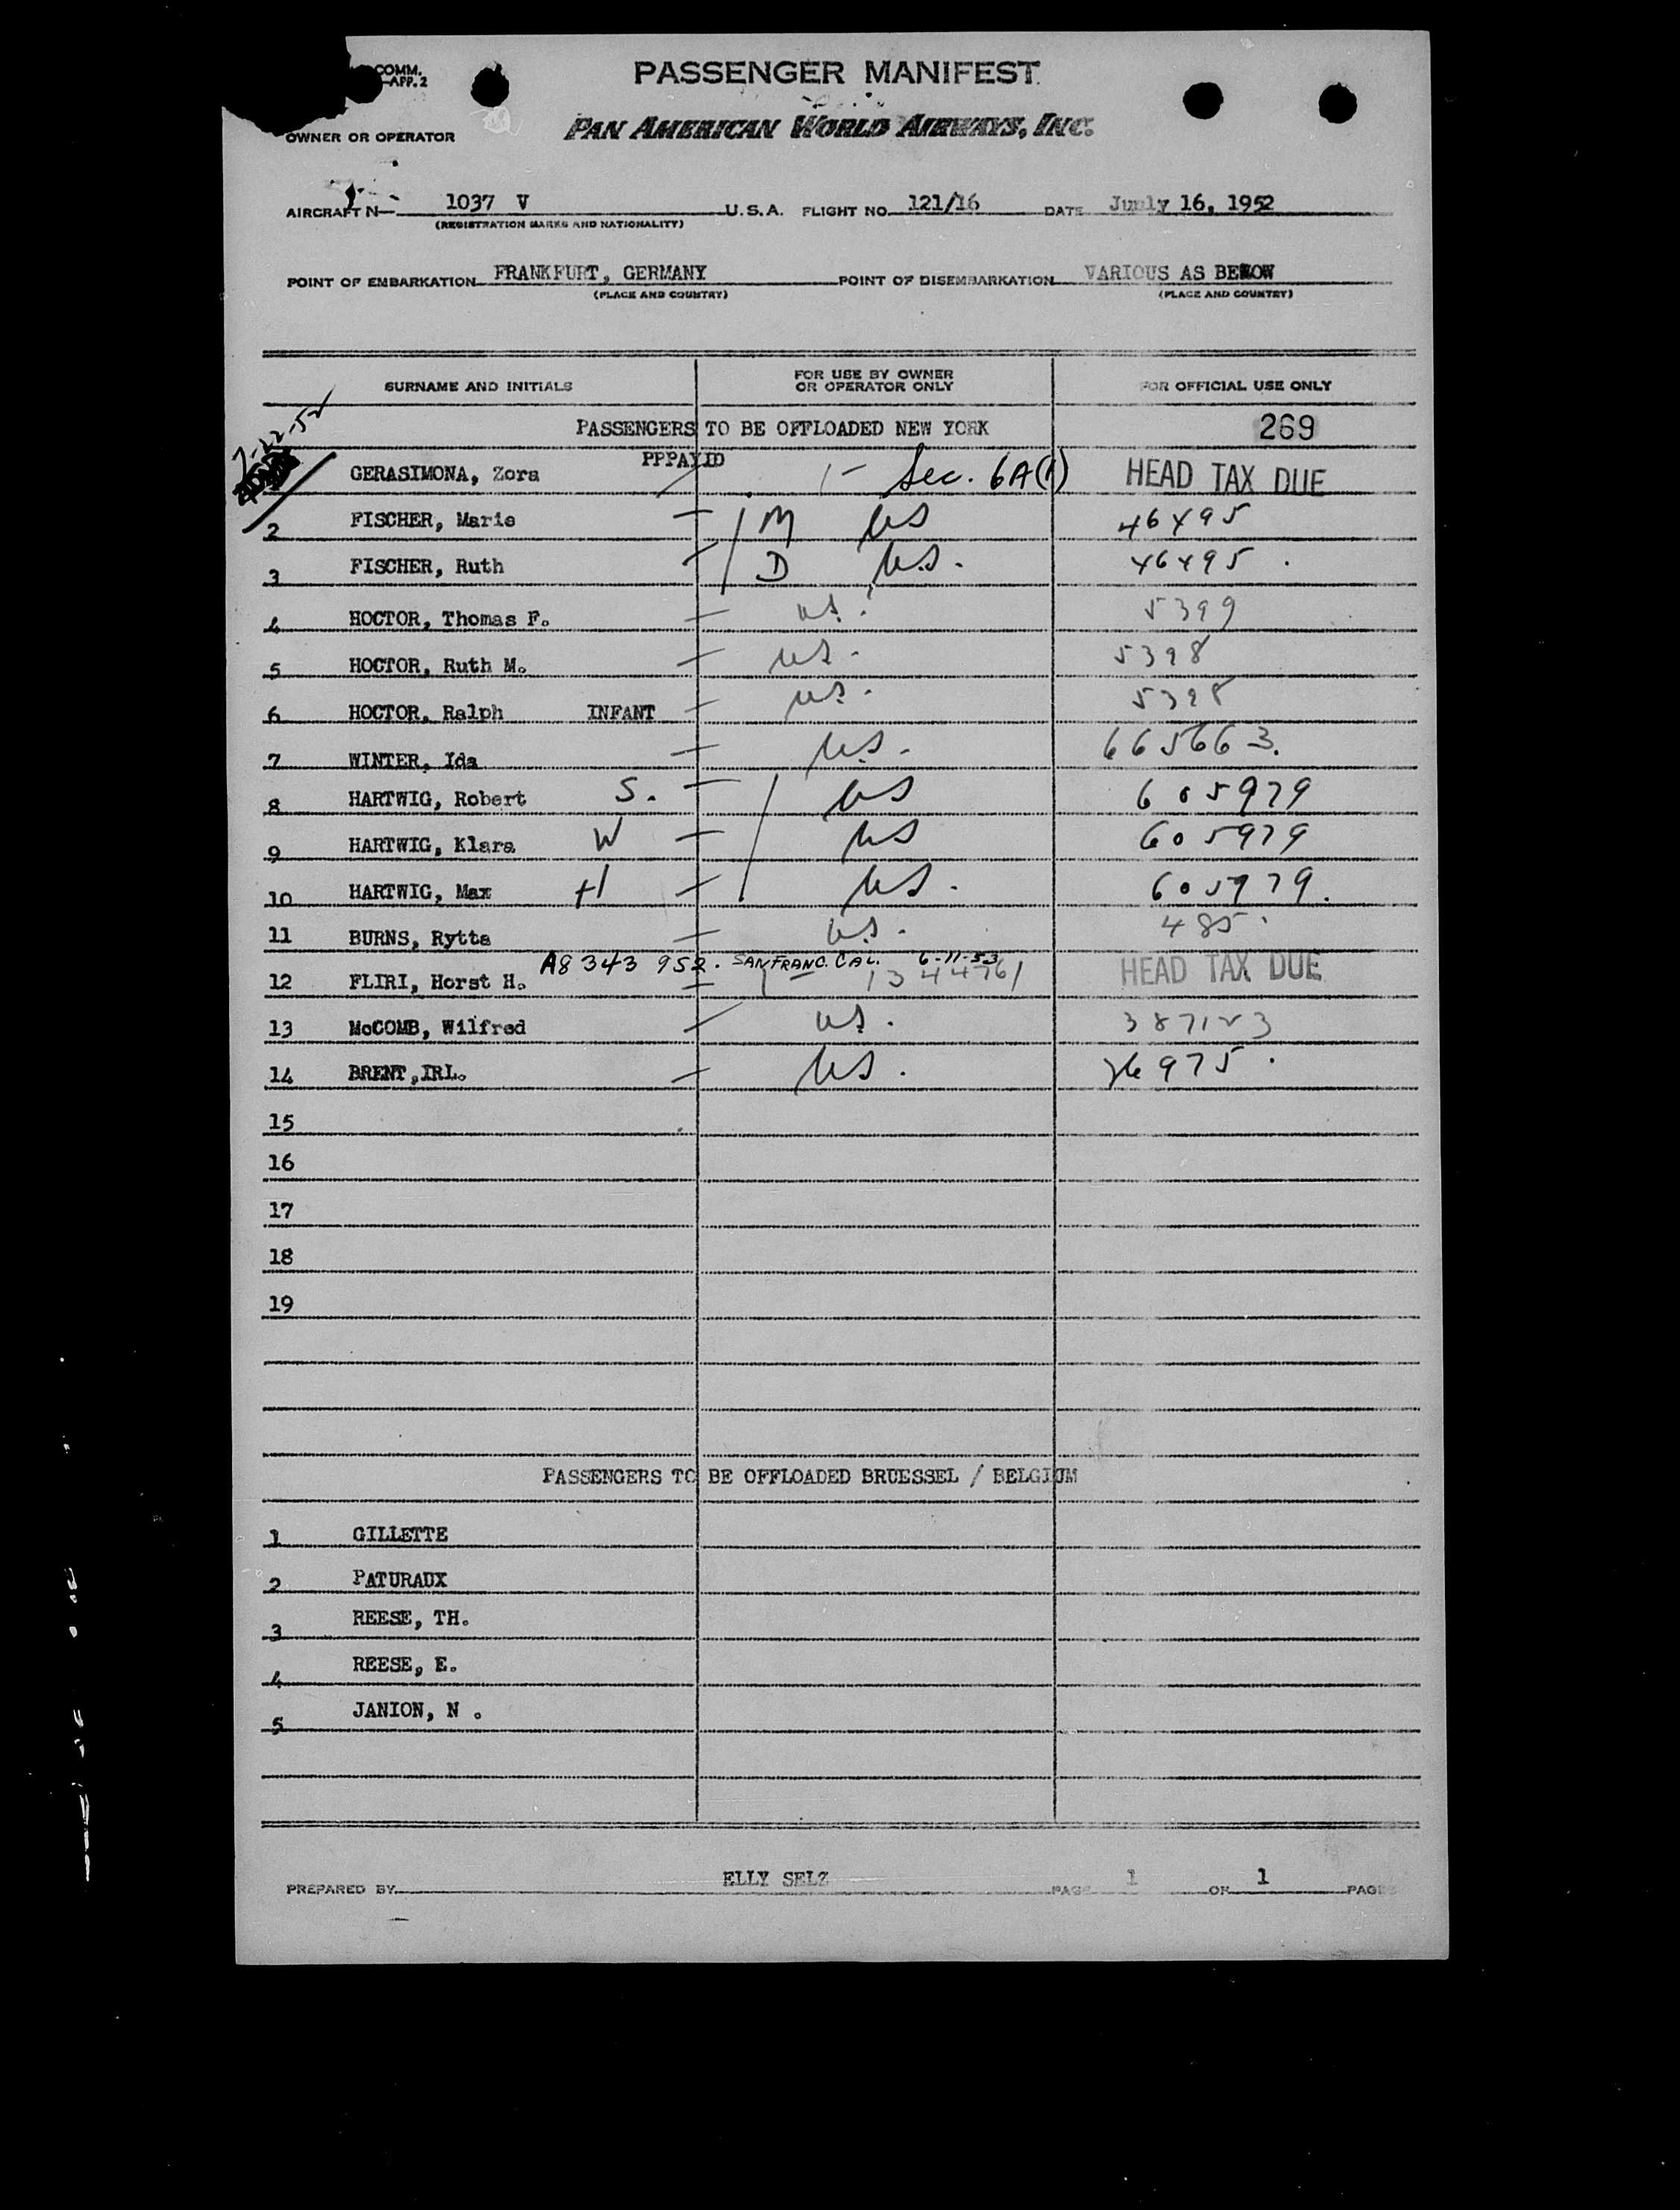 COMM.
-APP. 2
PASSENGER MANIFEST
OWNER OR OPERATOR PAN AMERICAN WORLD AIRWAYS, INC.
AIRCRAFT N- 1037 V U.S.A. FLIGHT NO. 121/16 DATE July 16, 1952
(REGISTRATION MARKS AND NATIONALITY)
POINT OF EMBARKATION FRANKFURT, GERMANY POINT OF DISEMBARKATION VARIOUS AS BELOW
(PLACE AND COUNTRY) (PLACE AND COUNTRY)
SURNAME AND INITIALS FOR USE BY OWNER OR OPERATOR ONLY FOR OFFICIAL USE ONLY
7-22-52
PASSENGERS TO BE OFFLOADED NEW YORK 269
GERASIMONA, Zora PPPAYID 1- Sec. 6A(1) HEAD TAX DUE
2 FISCHER, Marie M US 46495
3 FISCHER, Ruth D U.S. 46495.
4 HOCTOR, Thomas F. US. 5399
5 HOCTOR, Ruth M. US. 5398
6 HOCTOR, Ralph INFANT US. 5398
7 WINTER, Ida U.S. 665663.
8 HARTWIG, Robert S. US 605979
9 HARTWIG, Klara W US 605979
10 HARTWIG, Max H US. 605979.
11 BURNS, Rytta U.S. 485.
A8 343 952. SAN FRANC. CAL. 6-11-53
12 FLIRI, Horst H. 1344761 HEAD TAX DUE
13 McCOMB, Wilfred US. 387123
14 BRENT,IRL. US. 26975.
15
16
17
18
19
PASSENGERS TO BE OFFLOADED BRUESSEL / BELGIUM
1 GILLETTE
2 PATURAUX
3 REESE, TH.
4 REESE, E.
5 JANION, N .
PREPARED BY ELLY SELZ PAGE 1 OF 1 PAGES